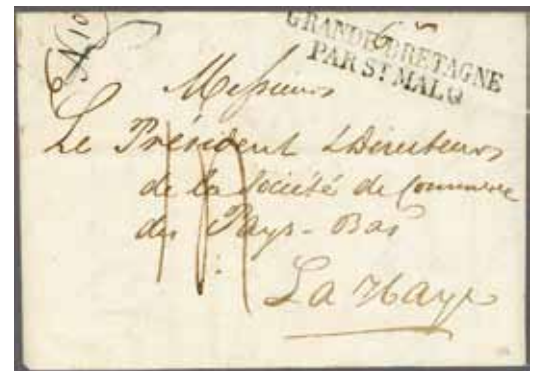 GRANDE-BRETAGNE
PAR ST MALO
Messieurs
Le Président & Directeurs
de la Société de Commerce
des Pays-Bas
La Haye